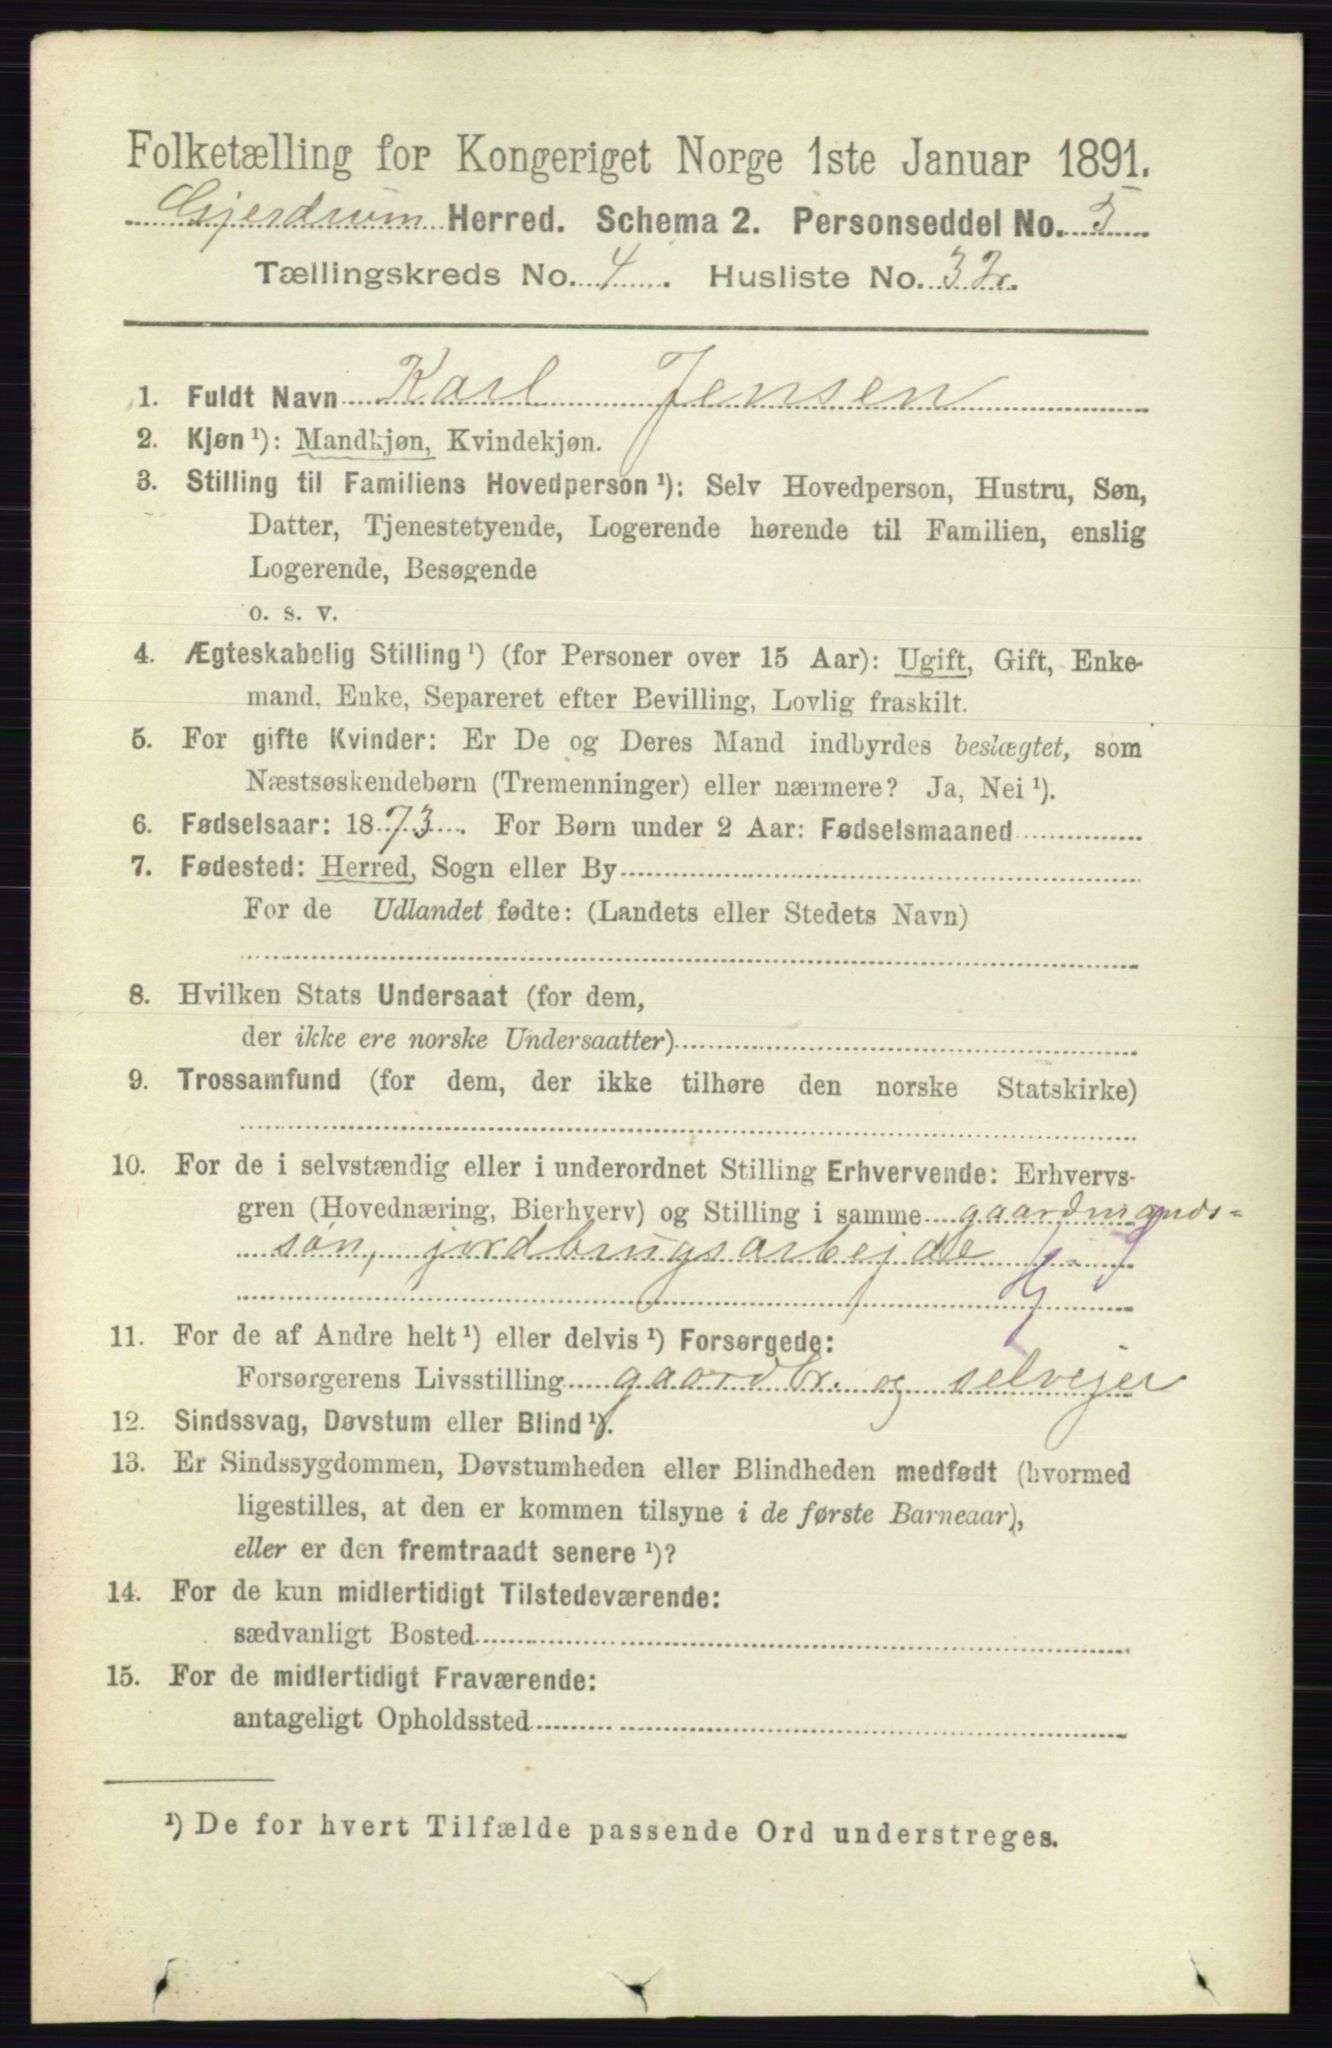 Folketælling for Kongeriget Norge 1ste Januar 1891.
Gjerdrum Herred. Schema 2. Personseddel No. 5
Tællingskreds No. 4. Husliste No. 32.
1. Fuldt Navn Karl Jensen
2. Kjøn¹): Mandkjøn, Kvindekjøn.
3. Stilling til Familiens Hovedperson¹): Selv Hovedperson, Hustru, Søn,
Datter, Tjenestetyende, Logerende hørende til Familien, enslig
Logerende, Besøgende
o. s. v.
4. Ægteskabelig Stilling¹) (for Personer over 15 Aar): Ugift, Gift, Enke-
mand, Enke, Separeret efter Bevilling, Lovlig fraskilt.
5. For gifte Kvinder: Er De og Deres Mand indbyrdes beslægtet, som
Næstsøskendebørn (Tremenninger) eller nærmere? Ja, Nei¹).
6. Fødselsaar: 1873. For Børn under 2 Aar: Fødselsmaaned
7. Fødested: Herred, Sogn eller By
For de Udlandet fødte: (Landets eller Stedets Navn)
8. Hvilken Stats Undersaat (for dem,
der ikke ere norske Undersaatter)
9. Trossamfund (for dem, der ikke tilhøre den norske Statskirke)
10. For de i selvstændig eller i underordnet Stilling Erhvervende: Erhvervs-
gren (Hovednæring, Bierhverv) og Stilling i samme gaardmands-
søn, jordbrugsarbejde
11. For de af Andre helt¹) eller delvis¹) Forsørgede:
Forsørgerens Livsstilling gaardbr. og selvejer
12. Sindssvag, Døvstum eller Blind¹).
13. Er Sindssygdommen, Døvstumheden eller Blindheden medfødt (hvormed
ligestilles, at den er kommen tilsyne i de første Barneaar),
eller er den fremtraadt senere¹)?
14. For de kun midlertidigt Tilstedeværende:
sædvanligt Bosted
15. For de midlertidigt Fraværende:
antageligt Opholdssted
¹) De for hvert Tilfælde passende Ord understreges.